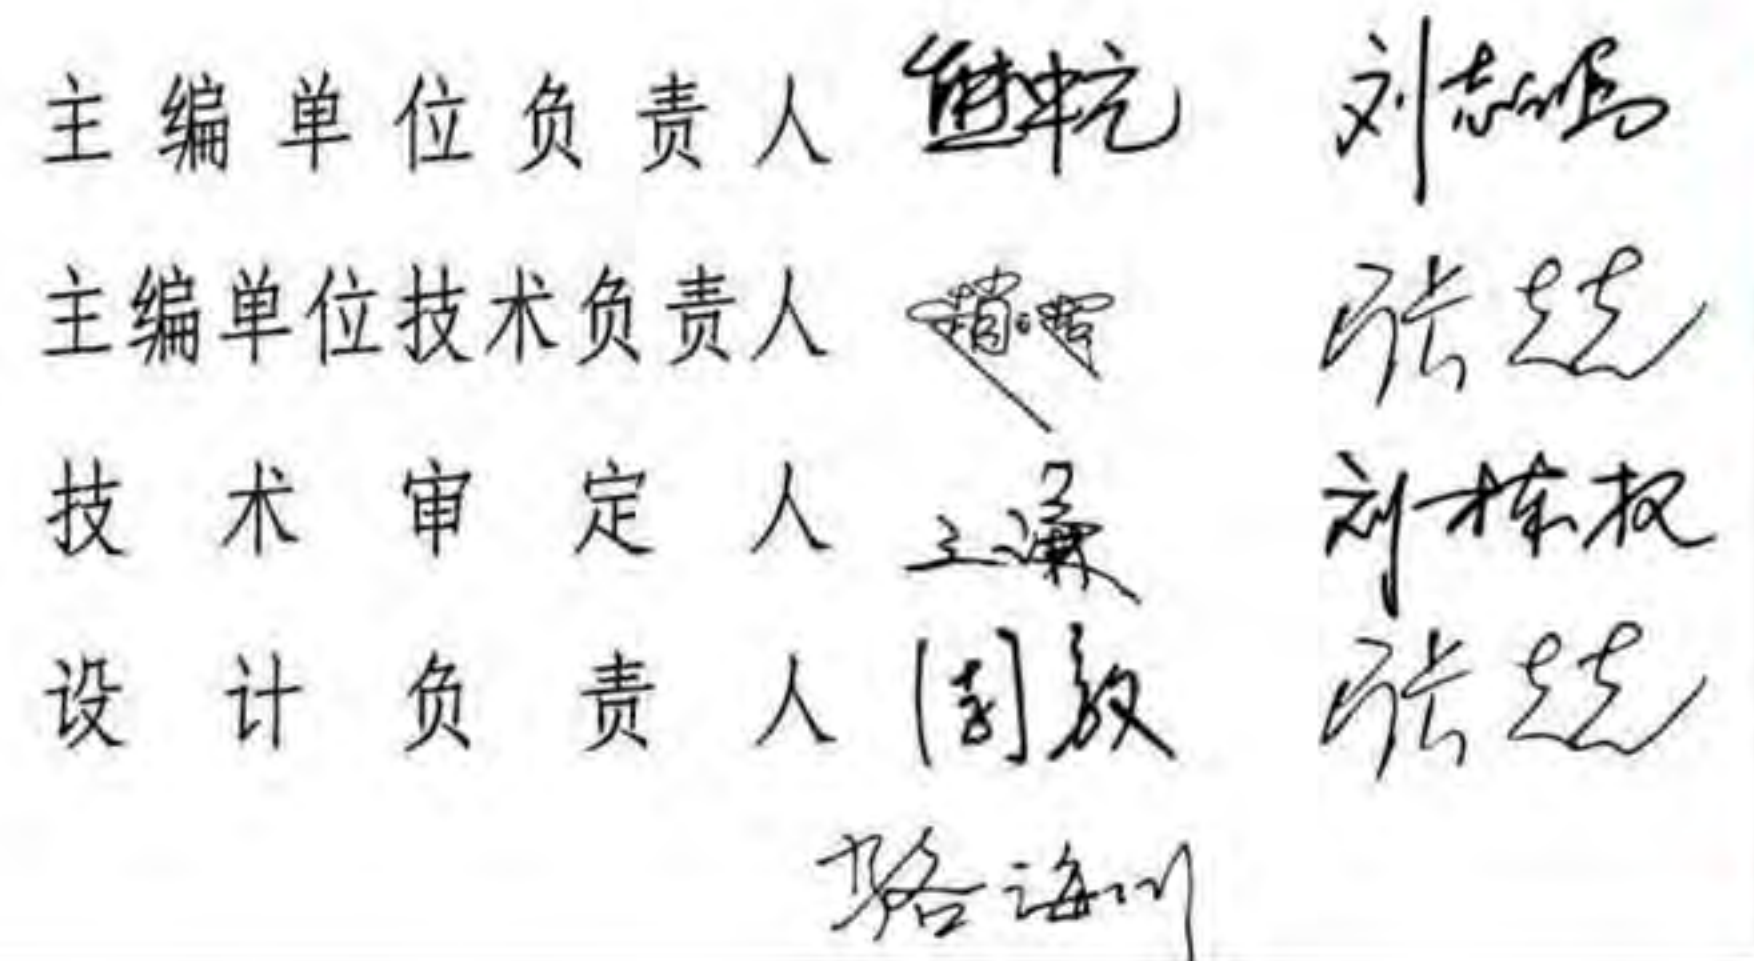 主编单位负责人 刘志鸿
主编单位技术负责人 张兢
技术审定人 刘栋权
设计负责人 周敏 张兢
骆海川